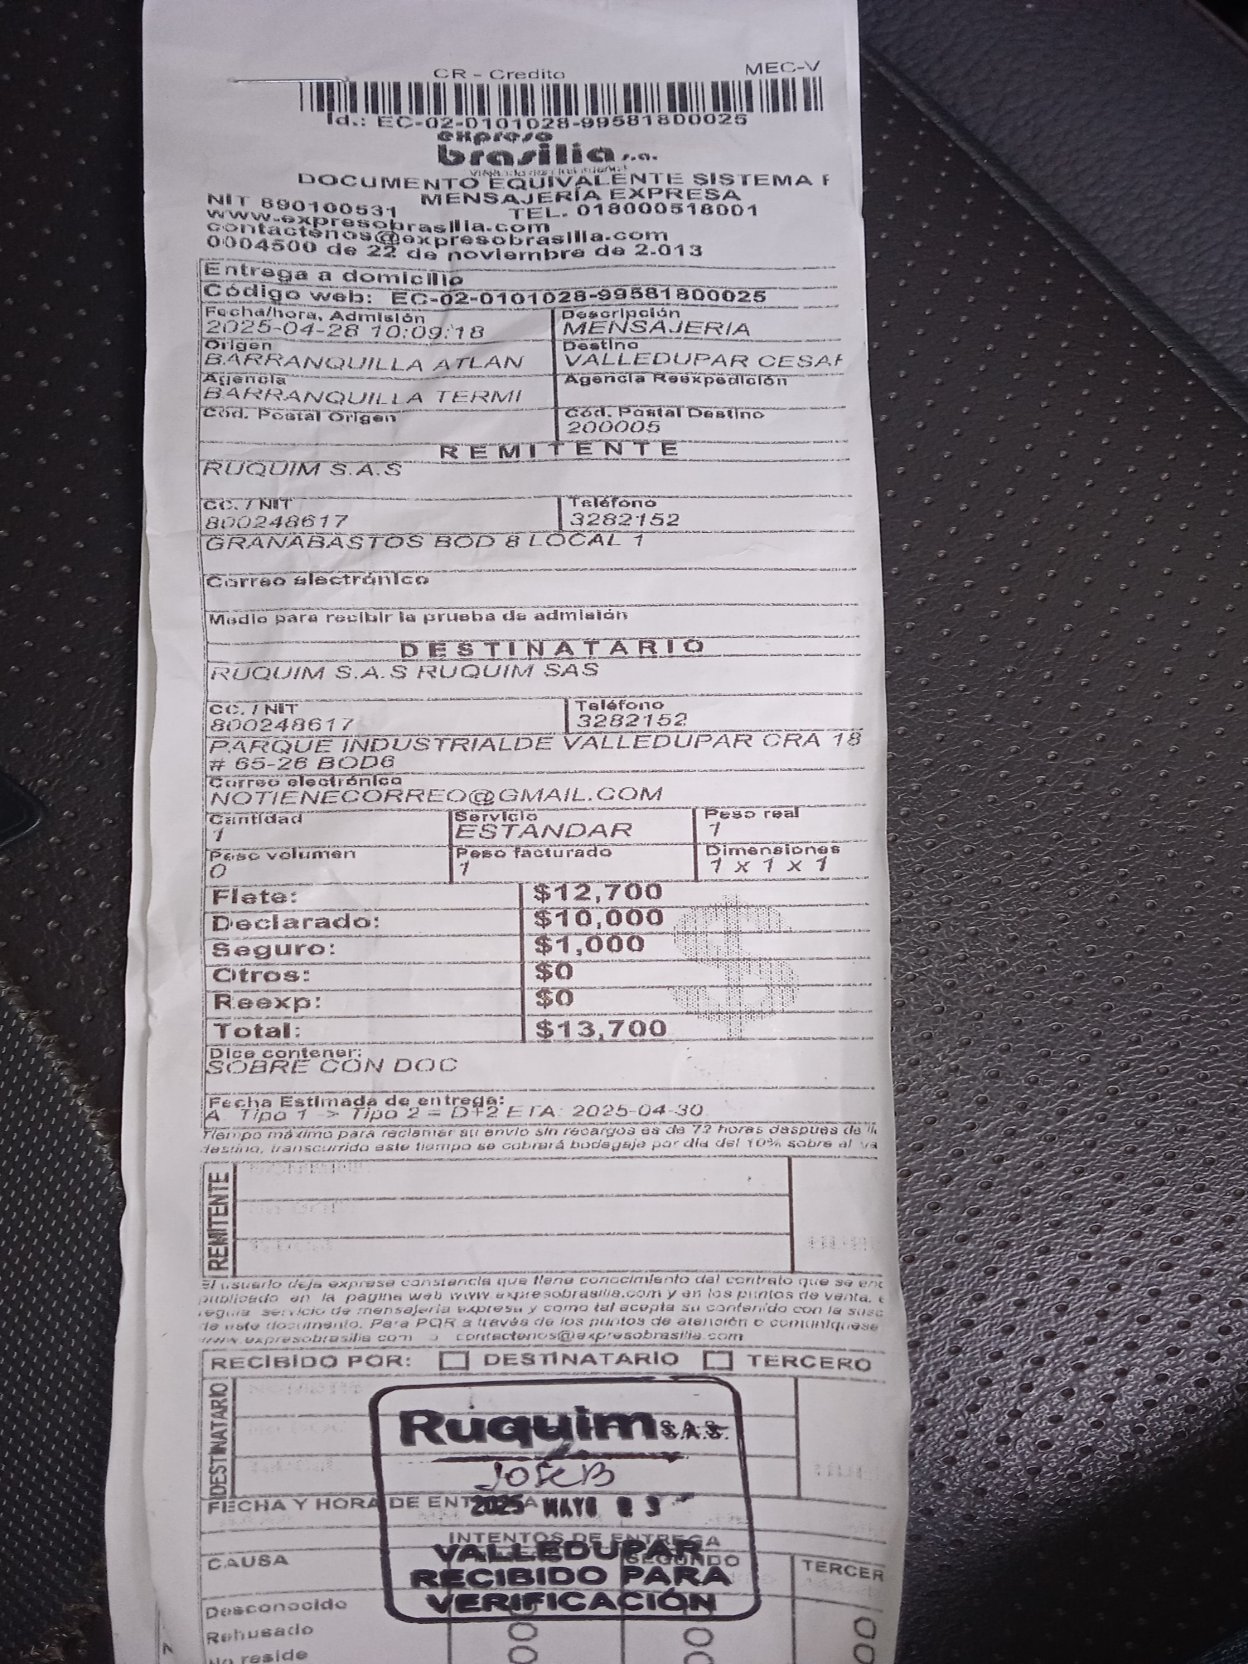 CR - Credito MEC-V
Id.: EC-02-0101028-99581800025
expreso
brasilia s.a.
DOCUMENTO EQUIVALENTE SISTEMA F
MENSAJERÍA EXPRESA
NIT 890100531 TEL. 018000518001
www.expresobrasilia.com
contactenos@expresobrasilia.com
0004500 de 22 de noviembre de 2.013
Entrega a domicilio
Código web: EC-02-0101028-99581800025
Fecha/hora, Admisión Descripción
2025-04-28 10:09:18 MENSAJERIA
Origen Destino
BARRANQUILLA ATLAN VALLEDUPAR CESAR
Agencia Agencia Reexpedición
BARRANQUILLA TERMI
Cód. Postal Origen Cód. Postal Destino
200005
REMITENTE
RUQUIM S.A.S
CC. / NIT Teléfono
800248617 3282152
GRANABASTOS BOD 8 LOCAL 1
Correo electrónico
Medio para recibir la prueba de admisión
DESTINATARIO
RUQUIM S.A.S RUQUIM SAS
CC. / NIT Teléfono
800248617 3282152
PARQUE INDUSTRIALDE VALLEDUPAR CRA 18
# 65-26 BOD6
Correo electrónico
NOTIENECORREO@GMAIL.COM
Cantidad Servicio Peso real
1 ESTANDAR 1
Peso volumen Peso facturado Dimensiones
0 1 1 x 1 x 1
Flete: $12,700
Declarado: $10,000
Seguro: $1,000
Otros: $0
Reexp: $0
Total: $13,700
Dice contener:
SOBRE CON DOC
Fecha Estimada de entrega:
A. Tipo 1 -> Tipo 2 = D+2 ETA: 2025-04-30
Tiempo máximo para reclamar su envío sin recargos es de 72 horas después de
destino, transcurrido este tiempo se cobrará bodegaje por día del 10% sobre el va
REMITENTE
El usuario deja expresa constancia que tiene conocimiento del contrato que se enc
publicado en la página web www.expresobrasilia.com y en los puntos de venta,
regula servicio de mensajería expresa y como tal acepta su contenido con la susc
de este documento. Para PQR a través de los puntos de atención o comuníquese
www.expresobrasilia.com o contactenos@expresobrasilia.com
RECIBIDO POR: DESTINATARIO TERCERO
DESTINATARIO
Ruquim S.A.S.
JOSE B
FECHA Y HORA DE ENTREGA
2025 MAYO 03
INTENTOS DE ENTREGA
CAUSA SEGUNDO TERCER
VALLEDUPAR
RECIBIDO PARA
VERIFICACIÓN
Desconocido
Rehusado
No reside